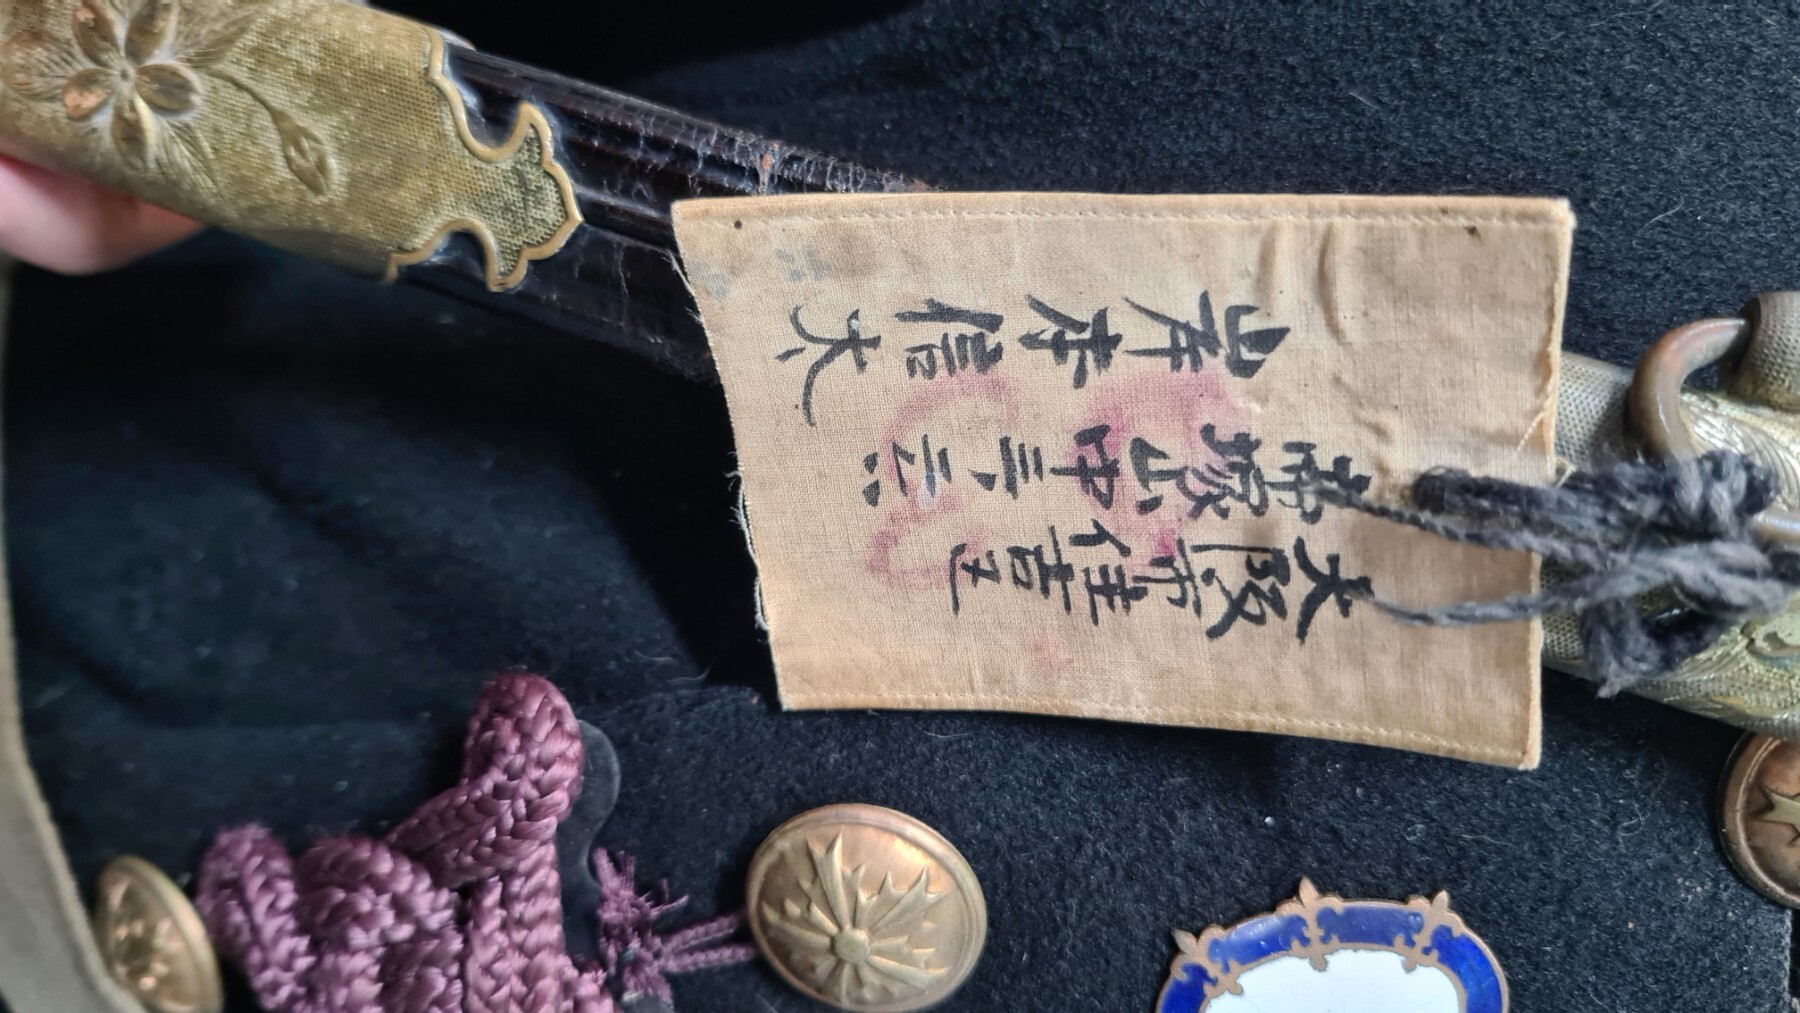 大阪市住吉区
帝塚山中三、二六
岸本信太